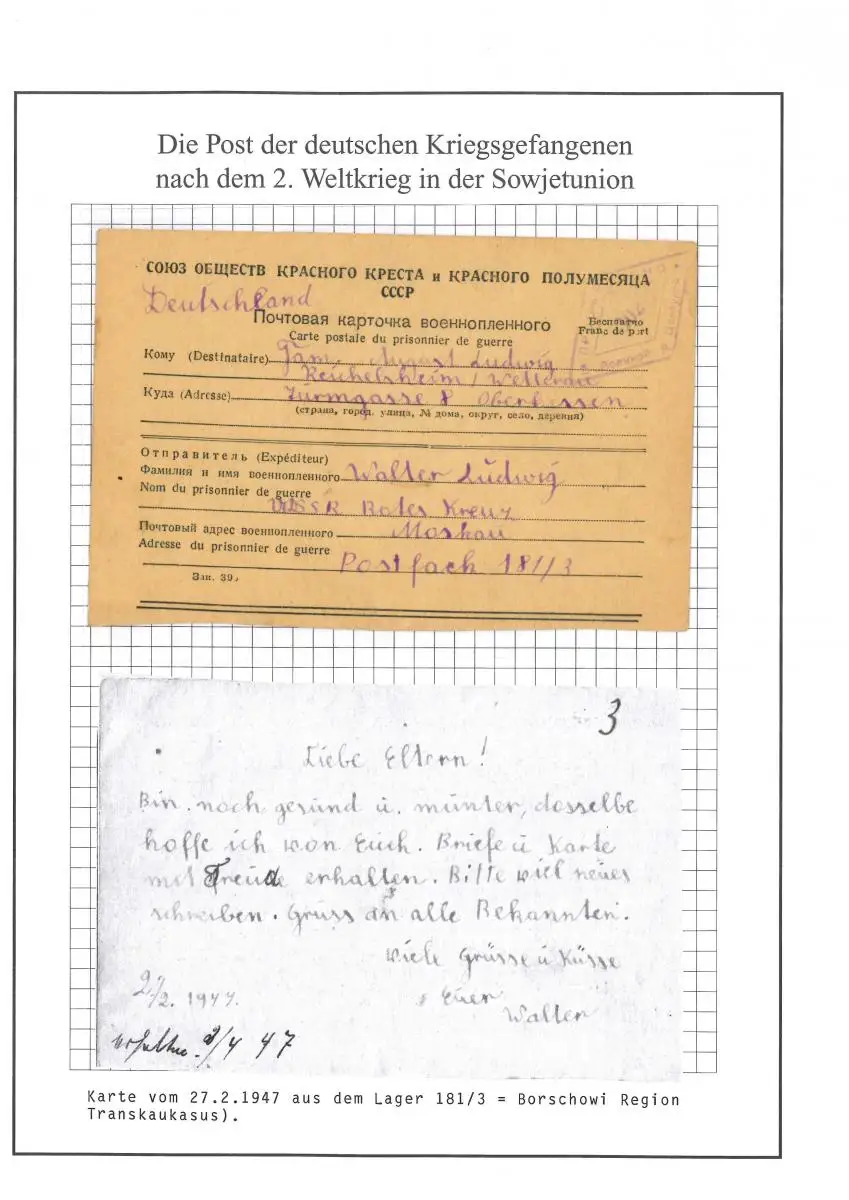 Die Post der deutschen Kriegsgefangenen
nach dem 2. Weltkrieg in der Sowjetunion
СОЮЗ ОБЩЕСТВ КРАСНОГО КРЕСТА и КРАСНОГО ПОЛУМЕСЯЦА
СССР
Deutschland
Почтовая карточка военнопленного
Бесплатно
Carte postale du prisonnier de guerre
Franc de port
Кому (Destinataire) Fam. August Ludwig
Reichelsheim / Wetterau
Куда (Adresse) Turmgasse 8 Oberhessen
(страна, город, улица, № дома, округ, село, деревня)
Отправитель (Expéditeur)
Фамилия и имя военнопленного Walter Ludwig
Nom du prisonnier de guerre
UdSSR Rotes Kreuz
Почтовый адрес военнопленного Moskau
Adresse du prisonnier de guerre
Postfach 181/3
Зак. 39
3
Liebe Eltern!
Bin noch gesund u. munter, dosselbe
hoffe ich won Euch. Briefe u Karte
mit Freude erhalten. Bitte wiel neues
schreiben. Gruss an alle Bekannten.
wiele Grüsse u Küsse
Euer
Walter
27/2. 1947.
erhalten 3/4 47
Karte vom 27.2.1947 aus dem Lager 181/3 = Borschowi Region
Transkaukasus).